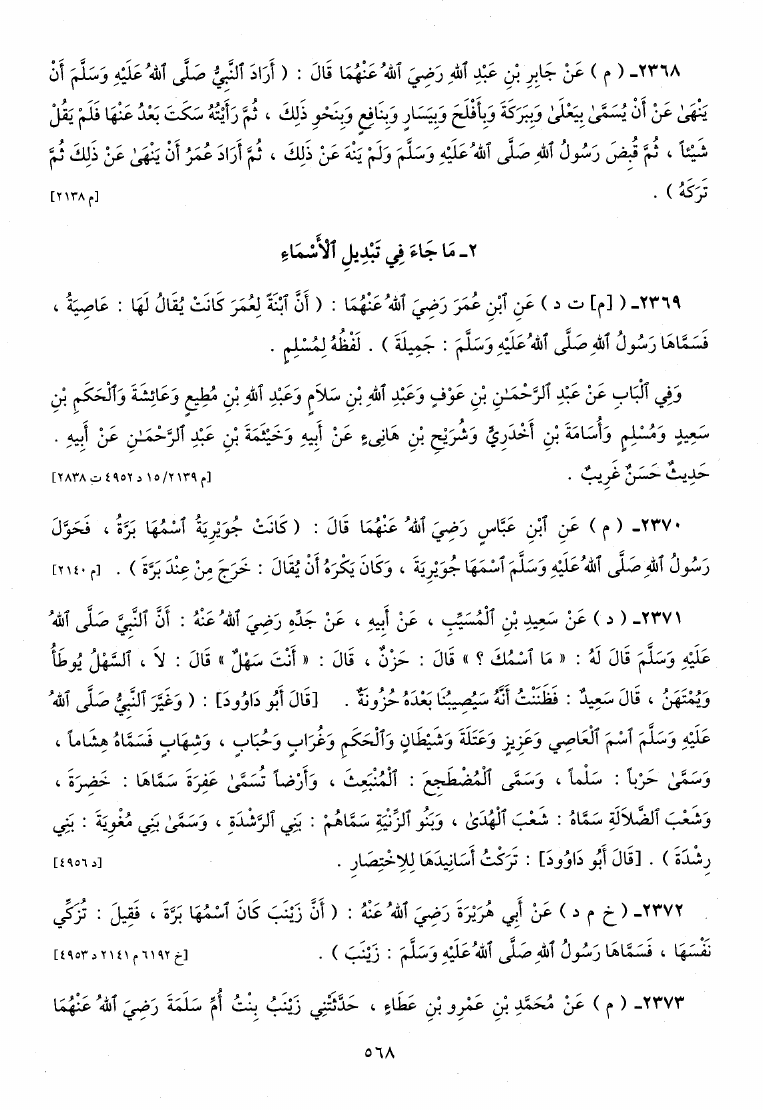 ٢٣٦٨ـ ( م ) عَنْ جَابِرِ بْنِ عَبْدِ ٱللهِ رَضِيَ ٱللهُ عَنْهُمَا قَالَ : ( أَرَادَ ٱلنَّبِيُّ صَلَّى ٱللهُ عَلَيْهِ وَسَلَّمَ أَنْ
يَنْهَىٰ عَنْ أَنْ يُسَمَّىٰ بِيَعْلَىٰ وَبِبَرَكَةَ وَبِأَفْلَحَ وَبِيَسَارٍ وَبِنَافِعٍ وَبِنَحْوِ ذَلِكَ ، ثُمَّ رَأَيْتُهُ سَكَتَ بَعْدُ عَنْهَا فَلَمْ يَقُلْ
شَيْئاً ، ثُمَّ قُبِضَ رَسُولُ ٱللهِ صَلَّى ٱللهُ عَلَيْهِ وَسَلَّمَ وَلَمْ يَنْهَ عَنْ ذَلِكَ ، ثُمَّ أَرَادَ عُمَرُ أَنْ يَنْهَىٰ عَنْ ذَلِكَ ثُمَّ
تَرَكَهُ ) . [م ٢١٣٨]
٢ـ مَا جَاءَ فِي تَبْدِيلِ ٱلْأَسْمَاءِ
٢٣٦٩ـ ( [م] ت د ) عَنِ ٱبْنِ عُمَرَ رَضِيَ ٱللهُ عَنْهُمَا : ( أَنَّ ٱبْنَةً لِعُمَرَ كَانَتْ يُقَالُ لَهَا : عَاصِيَةُ ،
فَسَمَّاهَا رَسُولُ ٱللهِ صَلَّى ٱللهُ عَلَيْهِ وَسَلَّمَ : جَمِيلَةَ ) . لَفْظُهُ لِمُسْلِمٍ .
وَفِي ٱلْبَابِ عَنْ عَبْدِ ٱلرَّحْمَـٰنِ بْنِ عَوْفٍ وَعَبْدِ ٱللهِ بْنِ سَلاَمٍ وَعَبْدِ ٱللهِ بْنِ مُطِيعٍ وَعَائِشَةَ وَٱلْحَكَمِ بْنِ
سَعِيدٍ وَمُسْلِمٍ وَأُسَامَةَ بْنِ أَخْدَرِيٍّ وَشُرَيْحِ بْنِ هَانِىءٍ عَنْ أَبِيهِ وَخَيْثَمَةَ بْنِ عَبْدِ ٱلرَّحْمَـٰنِ عَنْ أَبِيهِ .
حَدِيثٌ حَسَنٌ غَرِيبٌ . [م ١٥/٢١٣٩ د ٤٩٥٢ ت ٢٨٣٨]
٢٣٧٠ـ ( م ) عَنِ ٱبْنِ عَبَّاسٍ رَضِيَ ٱللهُ عَنْهُمَا قَالَ : ( كَانَتْ جُوَيْرِيَةُ ٱسْمُهَا بَرَّةُ ، فَحَوَّلَ
رَسُولُ ٱللهِ صَلَّى ٱللهُ عَلَيْهِ وَسَلَّمَ ٱسْمَهَا جُوَيْرِيَةَ ، وَكَانَ يَكْرَهُ أَنْ يُقَالَ : خَرَجَ مِنْ عِنْدَ بَرَّةَ ) . [م ٢١٤٠]
٢٣٧١ـ ( د ) عَنْ سَعِيدِ بْنِ ٱلْمُسَيِّبِ ، عَنْ أَبِيهِ ، عَنْ جَدِّهِ رَضِيَ ٱللهُ عَنْهُ : أَنَّ ٱلنَّبِيَّ صَلَّى ٱللهُ
عَلَيْهِ وَسَلَّمَ قَالَ لَهُ : « مَا ٱسْمُكَ ؟ » قَالَ : حَزْنٌ ، قَالَ : « أَنْتَ سَهْلٌ » قَالَ : لاَ ، ٱلسَّهْلُ يُوطَأُ
وَيُمْتَهَنُ ، قَالَ سَعِيدٌ : فَظَنَنْتُ أَنَّهُ سَيُصِيبُنَا بَعْدَهُ حُزُونَةٌ . [قَالَ أَبُو دَاوُودَ] : ( وَغَيَّرَ ٱلنَّبِيُّ صَلَّى ٱللهُ
عَلَيْهِ وَسَلَّمَ ٱسْمَ ٱلْعَاصِي وَعَزِيزٍ وَعَتَلَةَ وَشَيْطَانٍ وَٱلْحَكَمِ وَغُرَابٍ وَحُبَابٍ ، وَشِهَابٍ فَسَمَّاهُ هِشَاماً ،
وَسَمَّىٰ حَرْباً : سَلْماً ، وَسَمَّى ٱلْمُضْطَجِعَ : ٱلْمُنْبَعِثَ ، وَأَرْضاً تُسَمَّىٰ عَفِرَةَ سَمَّاهَا : خَضِرَةَ ،
وَشَعْبَ ٱلضَّلاَلَةِ سَمَّاهُ : شَعْبَ ٱلْهُدَىٰ ، وَبَنُو ٱلزِّنْيَةِ سَمَّاهُمْ : بَنِي ٱلرَّشْدَةِ ، وَسَمَّىٰ بَنِي مُغْوِيَةَ : بَنِي
رِشْدَةَ ) . [قَالَ أَبُو دَاوُودَ] : تَرَكْتُ أَسَانِيدَهَا لِلِاخْتِصَارِ . [د ٤٩٥٦]
٢٣٧٢ـ ( خ م د ) عَنْ أَبِي هُرَيْرَةَ رَضِيَ ٱللهُ عَنْهُ : ( أَنَّ زَيْنَبَ كَانَ ٱسْمُهَا بَرَّةَ ، فَقِيلَ : تُزَكِّي
نَفْسَهَا ، فَسَمَّاهَا رَسُولُ ٱللهِ صَلَّى ٱللهُ عَلَيْهِ وَسَلَّمَ : زَيْنَبَ ) . [خ ٦١٩٢ م ٢١٤١ د ٤٩٥٣]
٢٣٧٣ـ ( م ) عَنْ مُحَمَّدِ بْنِ عَمْرِو بْنِ عَطَاءٍ ، حَدَّثَتْنِي زَيْنَبُ بِنْتُ أُمِّ سَلَمَةَ رَضِيَ ٱللهُ عَنْهُمَا
٥٦٨